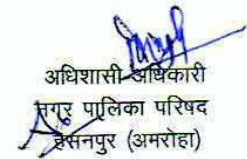 अधिशासी अधिकारी
नगर पालिका परिषद
हसनपुर (अमरोहा)